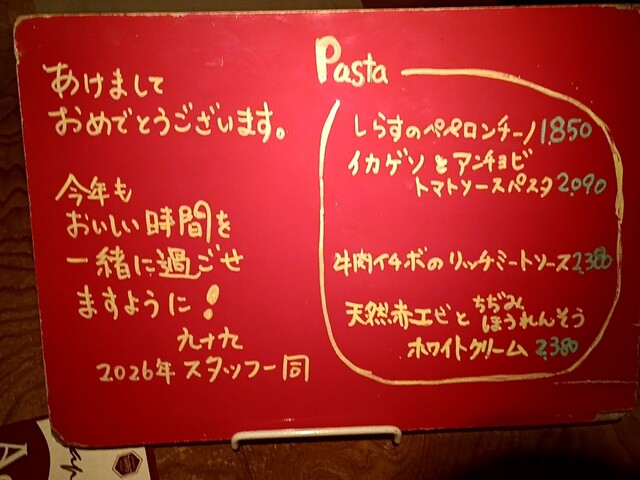 あけまして
おめでとうございます。
今年も
おいしい時間を
一緒に過ごせ
ますように!
九十九
2026年 スタッフ一同
Pasta
しらすのペペロンチーノ 1,850
イカゲソとアンチョビ
トマトソースパスタ 2,090
牛肉イチボのリッチミートソース 2,380
天然赤エビとちぢみほうれんそう
ホワイトクリーム 2,380